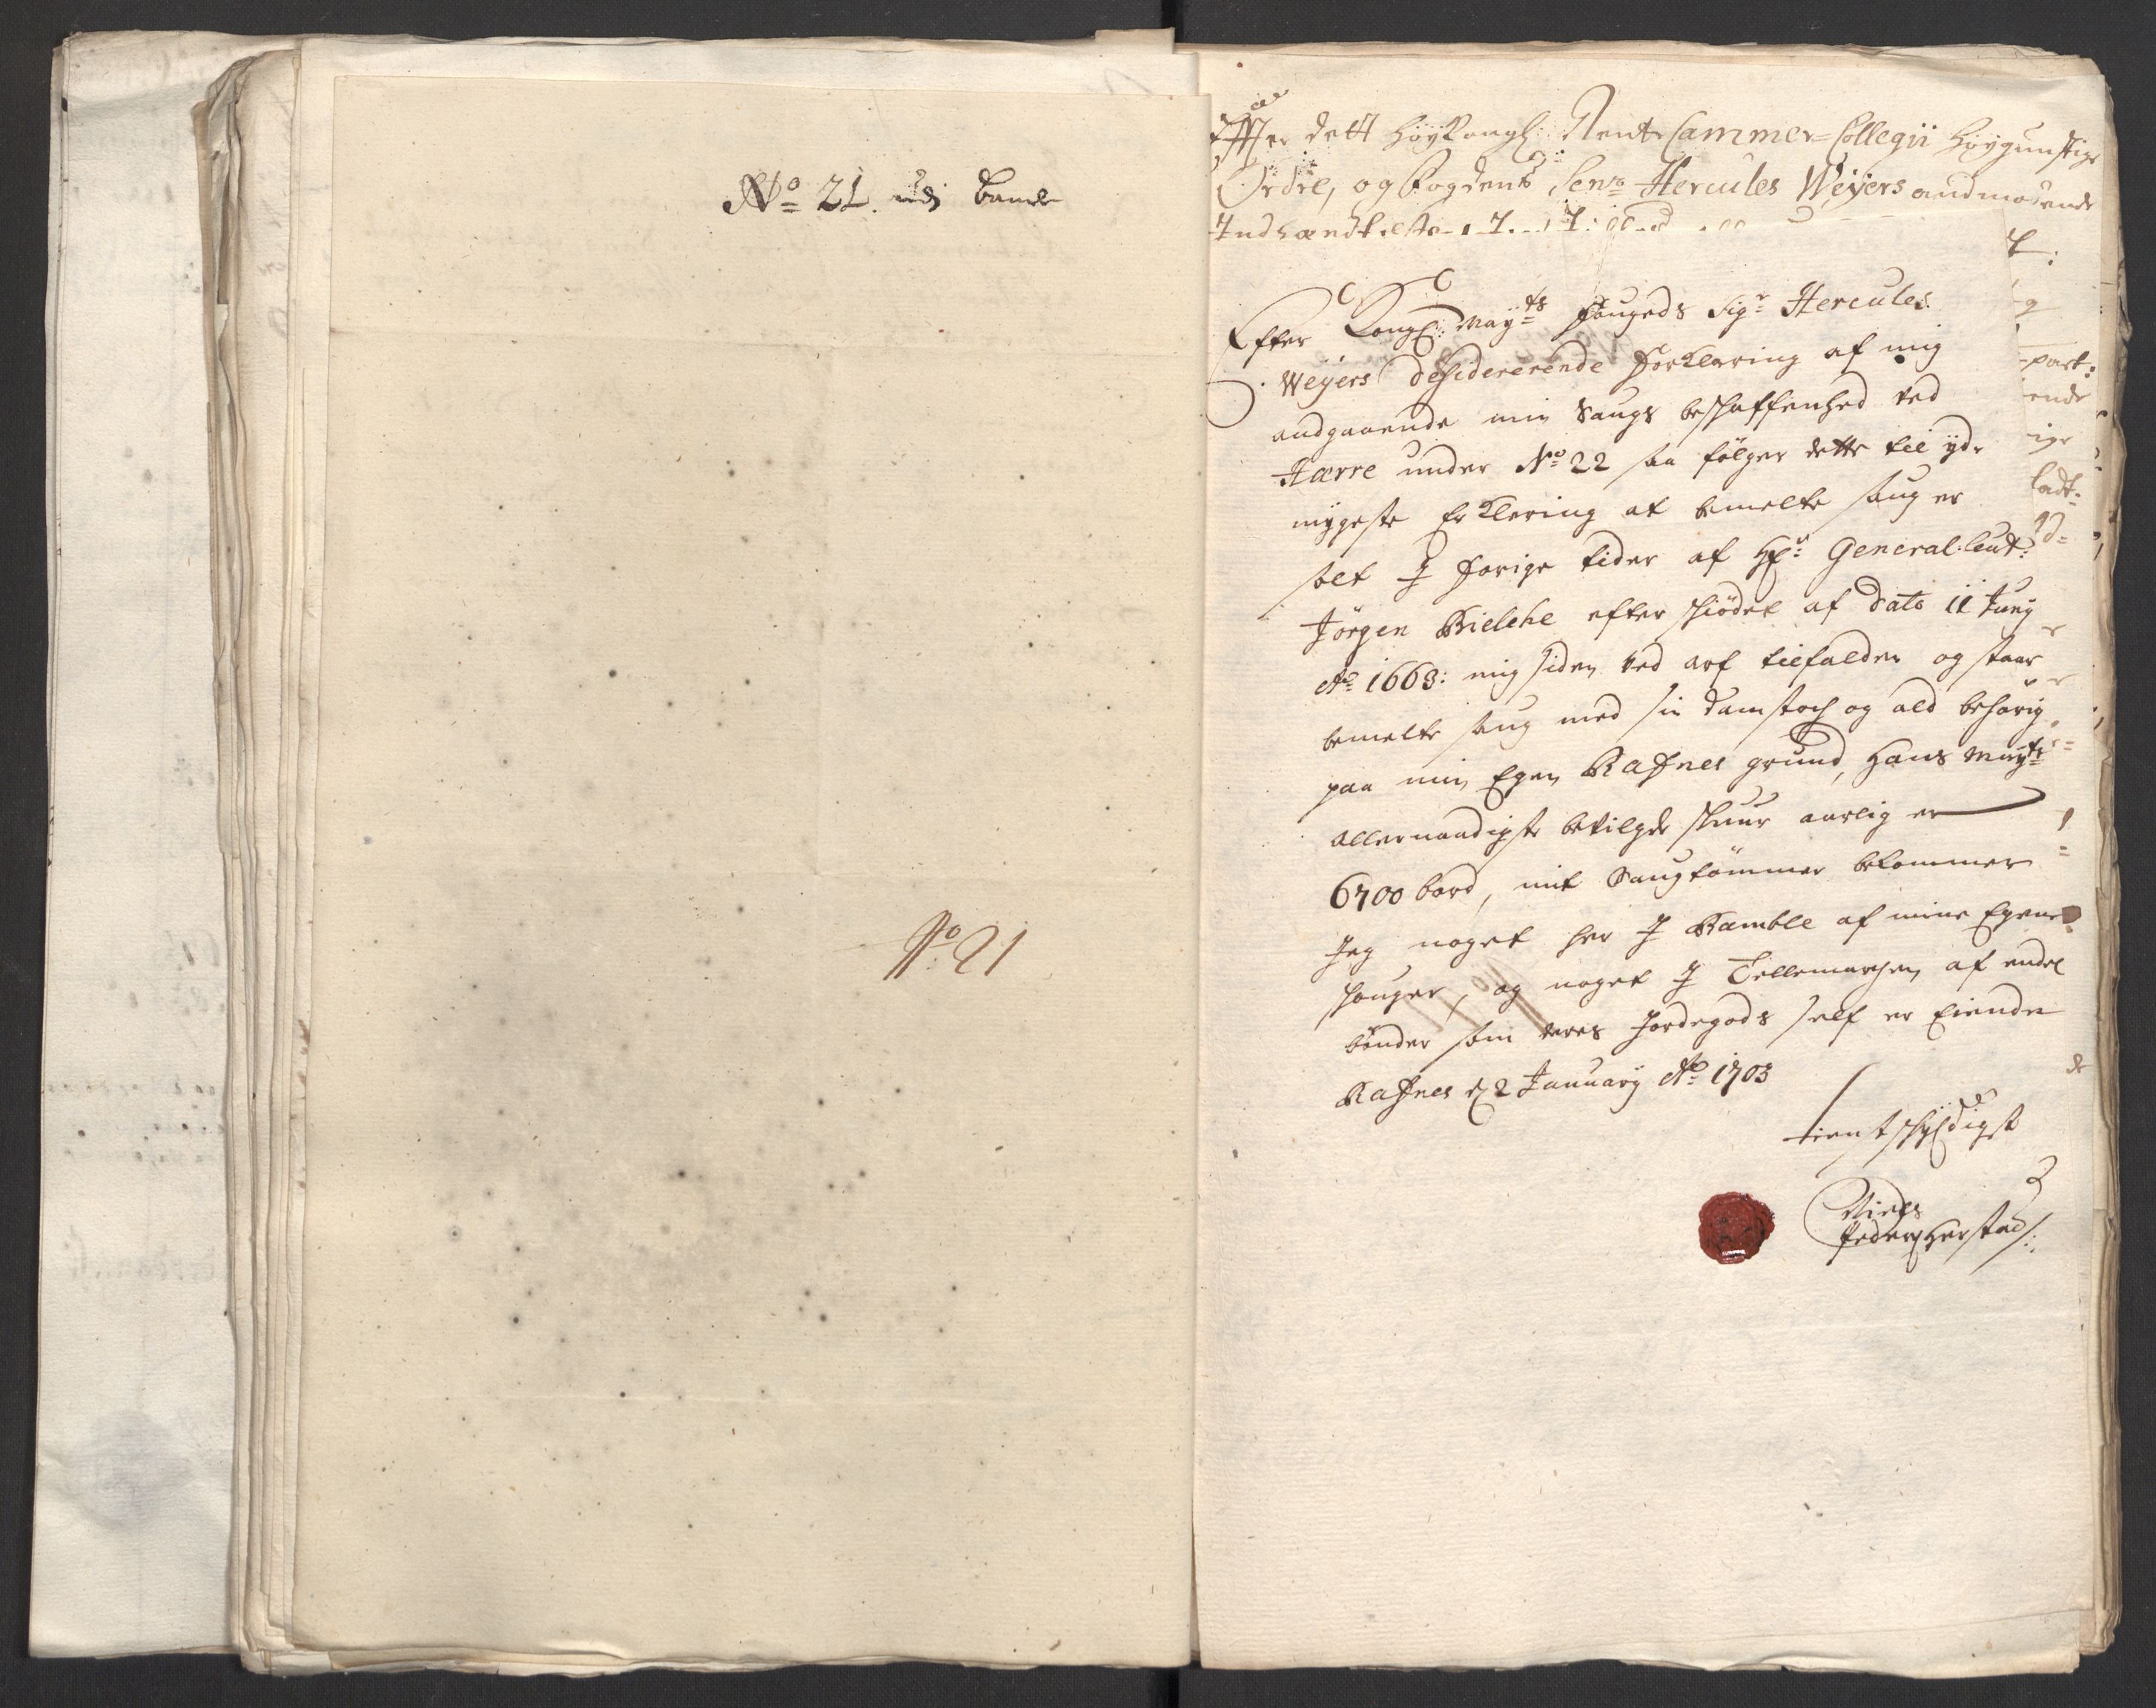 No 21. udj Bamle
No 21
Effter dett høyKongl: Rente Cammer=Collegii høygunstige
Ordre, og Fogdens Senr Hercules Weyers andmodende
Efter Kongl: Mayts fougeds Sigr Hercules
Weyers desidererende forklaring af mig
andgaaende min Saugs beskaffenhed ved
Herre under No 22 saa følger dette til ydr
mygeste Erklering at bemelte Saug er
solt J forige tider af Hr: General: Leut:
Jørgen Bielche efter skiødet af dato 11 Juny
Ao 1663: mig siden ved arf tilfalden og staar
bemelte Saug med sin damstoch og ald behørig
paa min Egen Rafnes grund, Hans Mayts
allernaadigste bevilgde skuur aarlig er
6700 bord, mit Saugtømmer bekommer
Jeg noget her J Bamble af mine Egene
skouger, og noget J Tellemarchen af endel
bønder som deres Jordegods self er Eiende
Rafnes d 2 January Ao 1703
tienstskyldigst
Niels
Pedersen